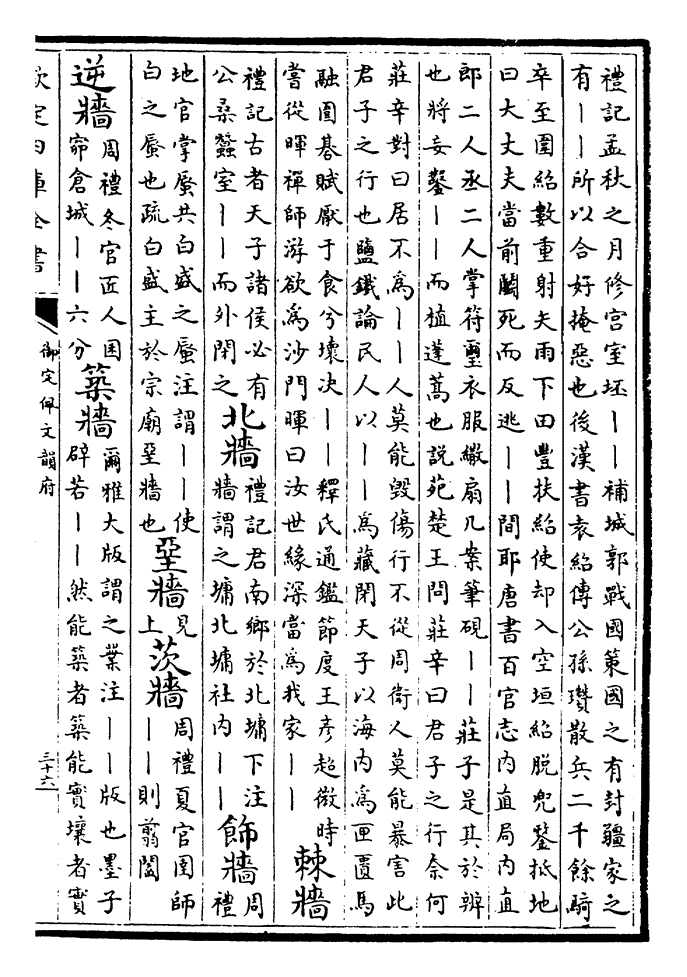 禮記孟秋之月修宫室坯丨丨補城郭戰國策國之有封疆家之
有丨丨所以合好掩惡也後漢書袁紹傳公孫瓚散兵二千餘騎
卒至圍紹數重射矢雨下田豐扶紹使却入空垣紹脱兜鍪抵地
曰大丈夫當前鬭死而反逃丨丨間耶唐書百官志内直局内直
郎二人丞二人掌符璽衣服繖扇几案筆硯丨丨莊子是其於辨
也將妄鑿丨丨而植蓬蒿也說苑楚王問莊辛曰君子之行奈何
莊辛對曰居不爲丨丨人莫能毁傷行不從周衛人莫能暴害此
君子之行也鹽鐵論民人以丨丨爲藏閉天子以海内爲匣匱馬
融圍棊賦厭于食兮壞决丨丨釋氏通鑑節度王彦超微時
嘗從暉禪師游欲爲沙門暉曰汝世緣深當爲我家丨丨
棘牆
禮記古者天子諸侯必有
公桑蠶室丨丨而外閉之
北牆
禮記君南鄉於北墉下注
牆謂之墉北墉社内丨丨
飾牆
周
禮
地官掌蜃共白盛之蜃注謂丨丨使
白之蜃也疏白盛主於宗廟堊牆也
堊牆
見
上
茨牆
周禮夏官圉師
丨丨則翦闔
逆牆
周禮冬官匠人囷
窌倉城丨丨六分
築牆
爾雅大版謂之業注丨丨版也墨子
辟若丨丨然能築者築能實壤者實
欽定四庫全書
御定佩文韻府
三十六